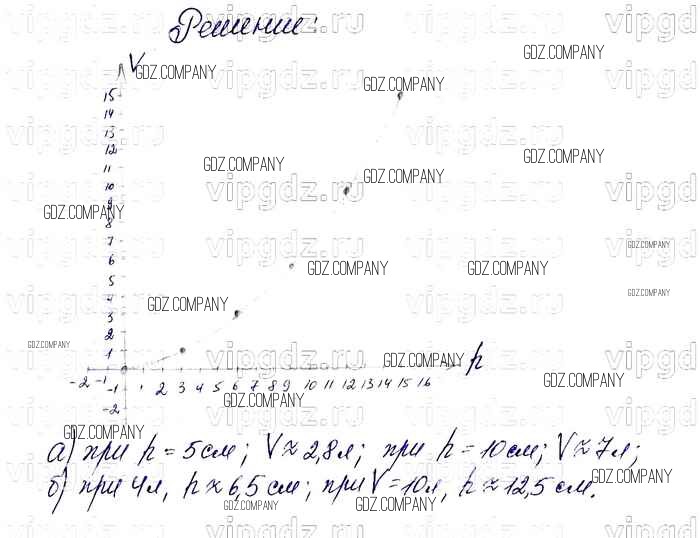 Решение:
V
15
14
13
12
11
10
9
8
7
6
5
4
3
2
1
-2 -1 1 2 3 4 5 6 7 8 9 10 11 12 13 14 15 16 h
-1
-2
а) при h = 5 см; V ≈ 2,8 л; при h = 10 см; V ≈ 7 л;
б) при 4 л, h ≈ 6,5 см; при V = 10 л, h ≈ 12,5 см.
vipgdz.ru
GDZ.COMPANY